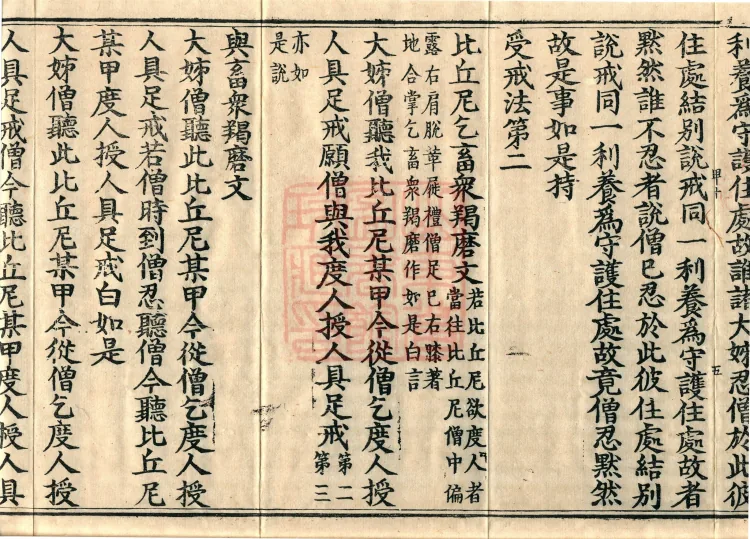 利養爲守護住處故誰諸大姊忍僧於此彼
甲十
五
住處結別說戒同一利養爲守護住處故者
默然誰不忍者說僧已忍於此彼住處結別
說戒同一利養爲守護住處故竟僧忍默然
故是事如是持
受戒法第二
比丘尼乞畜衆羯磨文
若比丘尼欲度人者
當往比丘尼僧中偏
露右肩脫革屣禮僧足已右膝著
地合掌乞畜衆羯磨作如是白言
大姊僧聽我比丘尼某甲今從僧乞度人授
人具足戒願僧與我度人授人具足戒
第二
第三
亦如
是說
與畜衆羯磨文
大姊僧聽此比丘尼某甲今從僧乞度人授
人具足戒若僧時到僧忍聽僧今聽比丘尼
某甲度人授人具足戒白如是
大姊僧聽此比丘尼某甲今從僧乞度人授
人具足戒僧今聽比丘尼某甲度人授人具